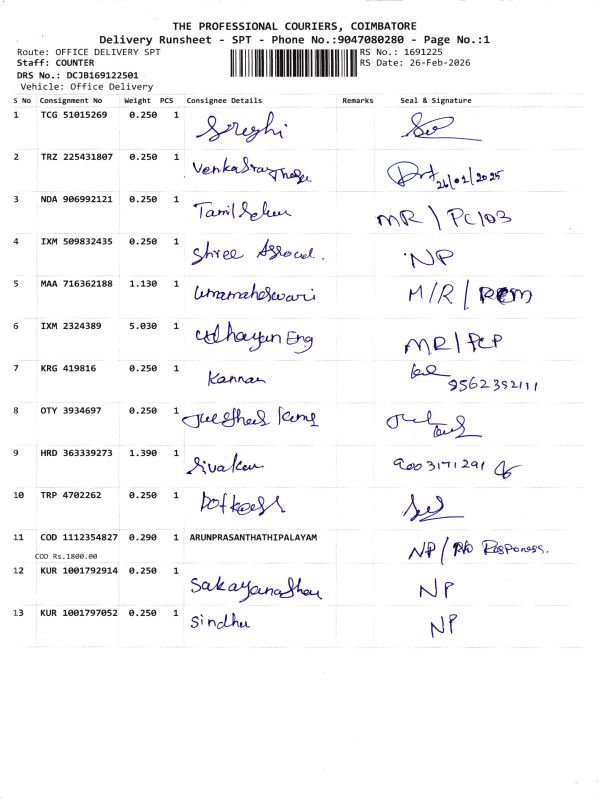 THE PROFESSIONAL COURIERS, COIMBATORE
Delivery Runsheet - SPT - Phone No.:9047080280 - Page No.:1
Route: OFFICE DELIVERY SPT
RS No.: 1691225
Staff: COUNTER
RS Date: 26-Feb-2026
DRS No.: DCJB169122501
Vehicle: Office Delivery
S No Consignment No Weight PCS Consignee Details Remarks Seal & Signature
1 TCG 51015269 0.250 1
2 TRZ 225431807 0.250 1 26/02/2025
3 NDA 906992121 0.250 1 MR/PC/03
4 IXM 509832435 0.250 1 Shree NP
5 MAA 716362188 1.130 1 Umamaheswari M/R/
6 IXM 2324389 5.030 1 Eng MR/PCP
7 KRG 419816 0.250 1 Kannan
8 OTY 3934697 0.250 1
9 HRD 363339273 1.390 1 9003171291
10 TRP 4702262 0.250 1
11 COD 1112354827 0.290 1 ARUNPRASANTHATHIPALAYAM NP/ No Response.
COD Rs.1800.00
12 KUR 1001792914 0.250 1 NP
13 KUR 1001797052 0.250 1 Sindhu NP